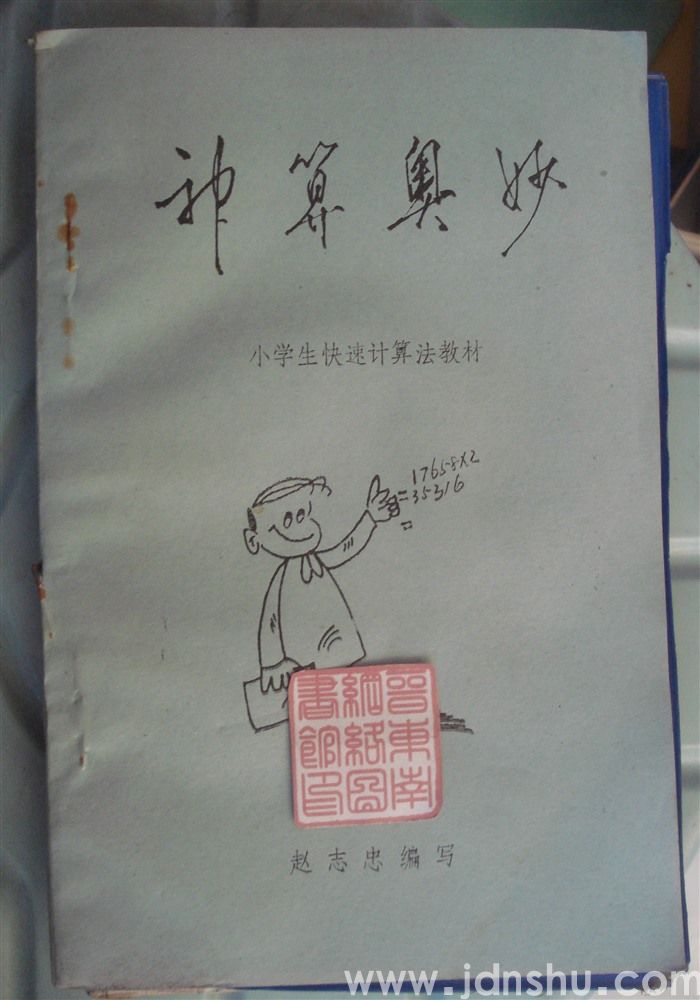 神算奥妙
小学生快速计算法教材
17658×2
=35316
=
晋东南
网络图
书馆印
赵志忠编写
www.jdnshu.com